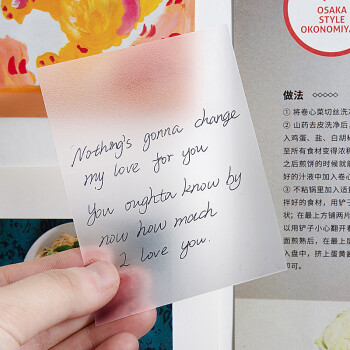 OSAKA
STYLE
OKONOMIYA
Nothing's gonna change
my love for you
You oughtta know by
now how much
I love you.
做法
① 將卷心菜切丝洗
② 山药去皮洗净后
入鸡蛋、盐、白胡
至所有食材变得浓
之后煎饼的时候就
好的汁液中加入卷
③ 不粘锅里加入适
拌好的食材，用铲
状；在最上方铺两片
以用铲子小心翻开卷
面煎熟后，在最上
入盘中，挤上蛋黄酱
即可。